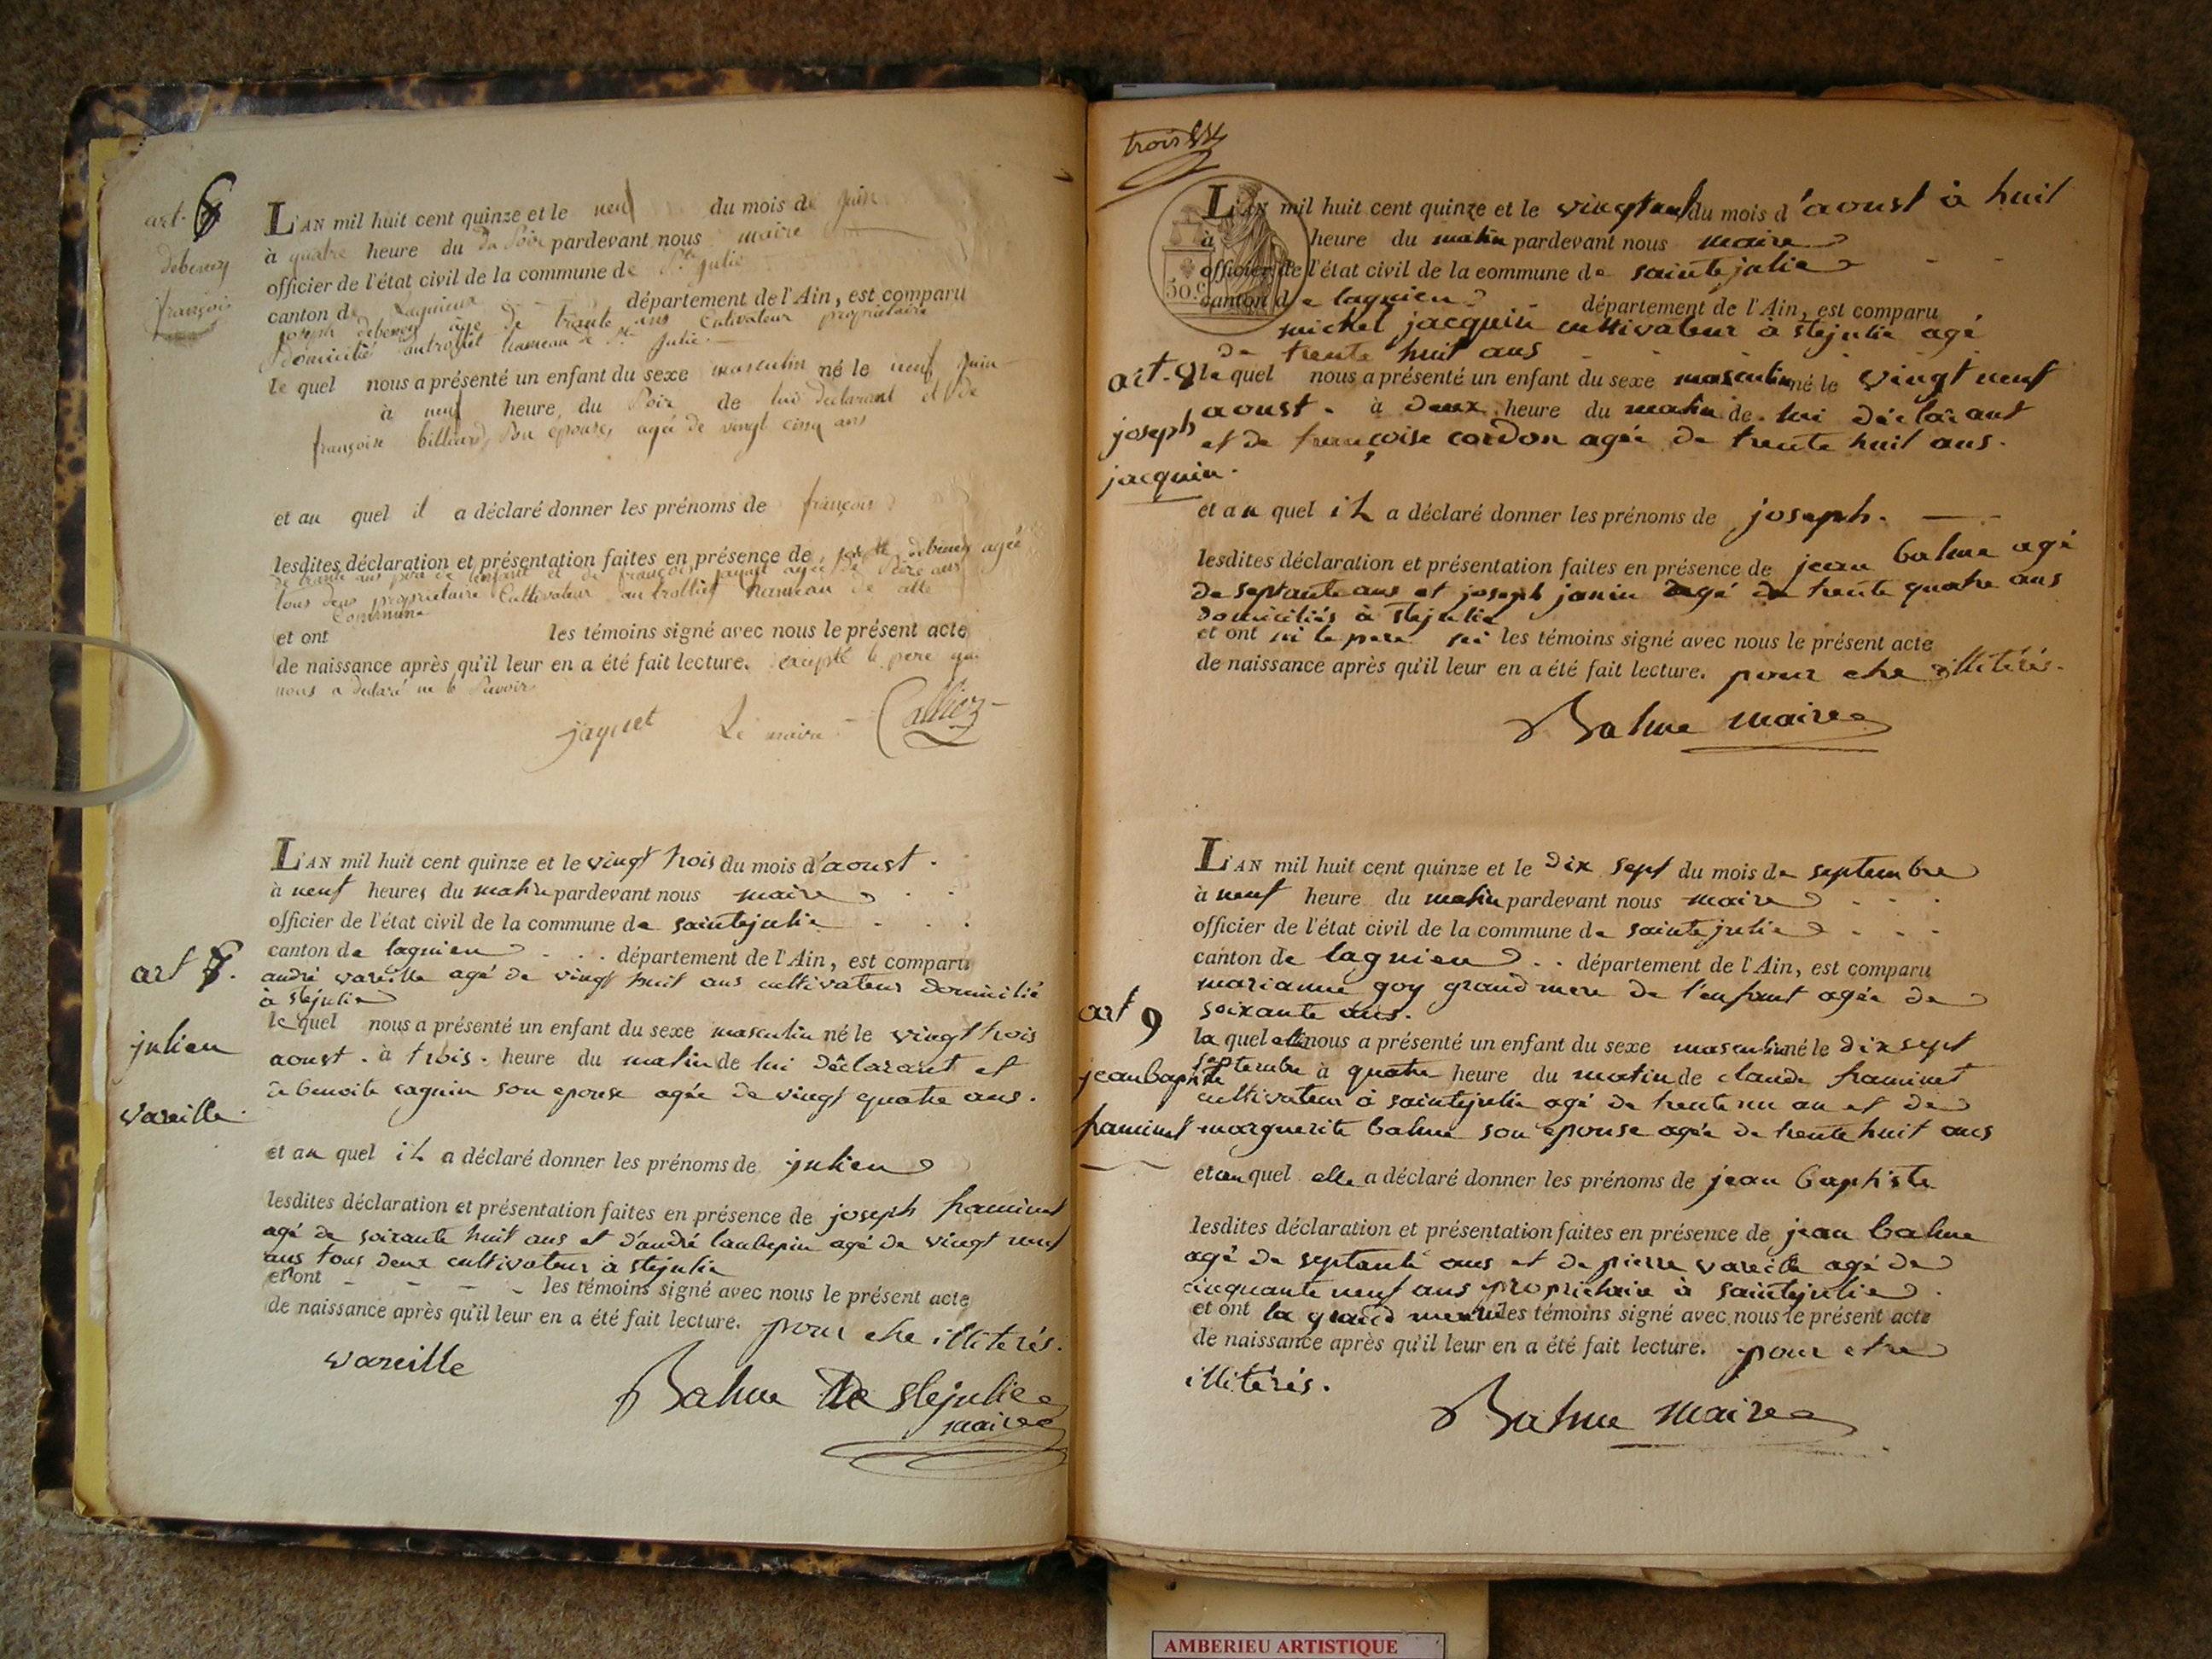 art. 6
debeney
françois
L'AN mil huit cent quinze et le neuf du mois de juin
à quatre heure du du Soir pardevant nous maire
officier de l'état civil de la commune de Ste julie
canton de Lagnieux département de l'Ain, est comparu
joseph debeney age de trante ans Cultivateur propriétaire
domicilié hameau de Ste julie.
le quel nous a présenté un enfant du sexe masculin né le neuf juin
à neuf heure du Soir de lui déclarant et de
françoise billiard, Son epouse, agée de vingt cinq ans
et au quel il a déclaré donner les prénoms de françois
lesdites déclaration et présentation faites en présence de debeney agée
de trante ans père de l'enfant et de françois jaquet agée de ans
tous deux propriétaire Cultivateur hameau de
Commune
et ont les témoins signé avec nous le présent acte
de naissance après qu'il leur en a été fait lecture. excepté le pere qui
nous a déclaré ne le Savoir
jaquet Le maire
L'AN mil huit cent quinze et le vingt trois du mois d'aoust.
à neuf heures du matin pardevant nous maire
officier de l'état civil de la commune de saintejulie
canton de lagnieu département de l'Ain, est comparu
art 7.
andré vareille agé de vingt huit ans cultivateur domicilié
à stejulie
le quel nous a présenté un enfant du sexe masculin né le vingt trois
julien
aoust. à trois. heure du matin de lui déclarant et
de benoite cagnin son epouse agée de vingt quatre ans.
vareille.
et au quel il a déclaré donner les prénoms de julien
lesdites déclaration et présentation faites en présence de joseph framinet
agé de soixante huit ans et d'andré laubepin agé de vingt neuf
ans tous deux cultivateur à stejulie
et ont les témoins signé avec nous le présent acte
de naissance après qu'il leur en a été fait lecture. pour etre illitérés.
vareille
Balme De stejulie
maire
trois
L'AN mil huit cent quinze et le vingt neuf du mois d'aoust à huit
à heure du matin pardevant nous maire
officier de l'état civil de la commune de saintejulie
50.c
canton de lagnieu département de l'Ain, est comparu
michel jacquin cultivateur à stejulie agé
de trente huit ans
art. 8
le quel nous a présenté un enfant du sexe masculin né le vingt neuf
aoust. à deux heure du matin de lui déclarant
joseph
et de françoise cordon agée de trente huit ans.
jacquin.
et au quel il a déclaré donner les prénoms de joseph.
lesdites déclaration et présentation faites en présence de jean balme agé
de septante ans et joseph janin agé de trente quatre ans
domiciliés à stejulie
et ont ni le pere ni les témoins signé avec nous le présent acte
de naissance après qu'il leur en a été fait lecture. pour etre illitérés.
Balme maire
L'AN mil huit cent quinze et le dix sept du mois de septembre
à neuf heure du matin pardevant nous maire
officier de l'état civil de la commune de saintejulie
canton de lagnieu département de l'Ain, est comparu
marianne goy grand mere de l'enfant agée de
art 9
soixante ans.
la quel elle nous a présenté un enfant du sexe masculin né le dix sept
jean baptiste
septembre à quatre heure du matin de claude framinet
cultivateur à saintejulie agé de trente un an et de
framinet
marguerite balme son epouse agée de trente huit ans
et au quel elle a déclaré donner les prénoms de jean baptiste
lesdites déclaration et présentation faites en présence de jean balme
agé de septante ans et de pierre vareille agé de
cinquante neuf ans propriétaire à saintejulie.
et ont la grand mere ni les témoins signé avec nous le présent acte
de naissance après qu'il leur en a été fait lecture. pour etre
illitérés.
Balme maire
AMBERIEU ARTISTIQUE